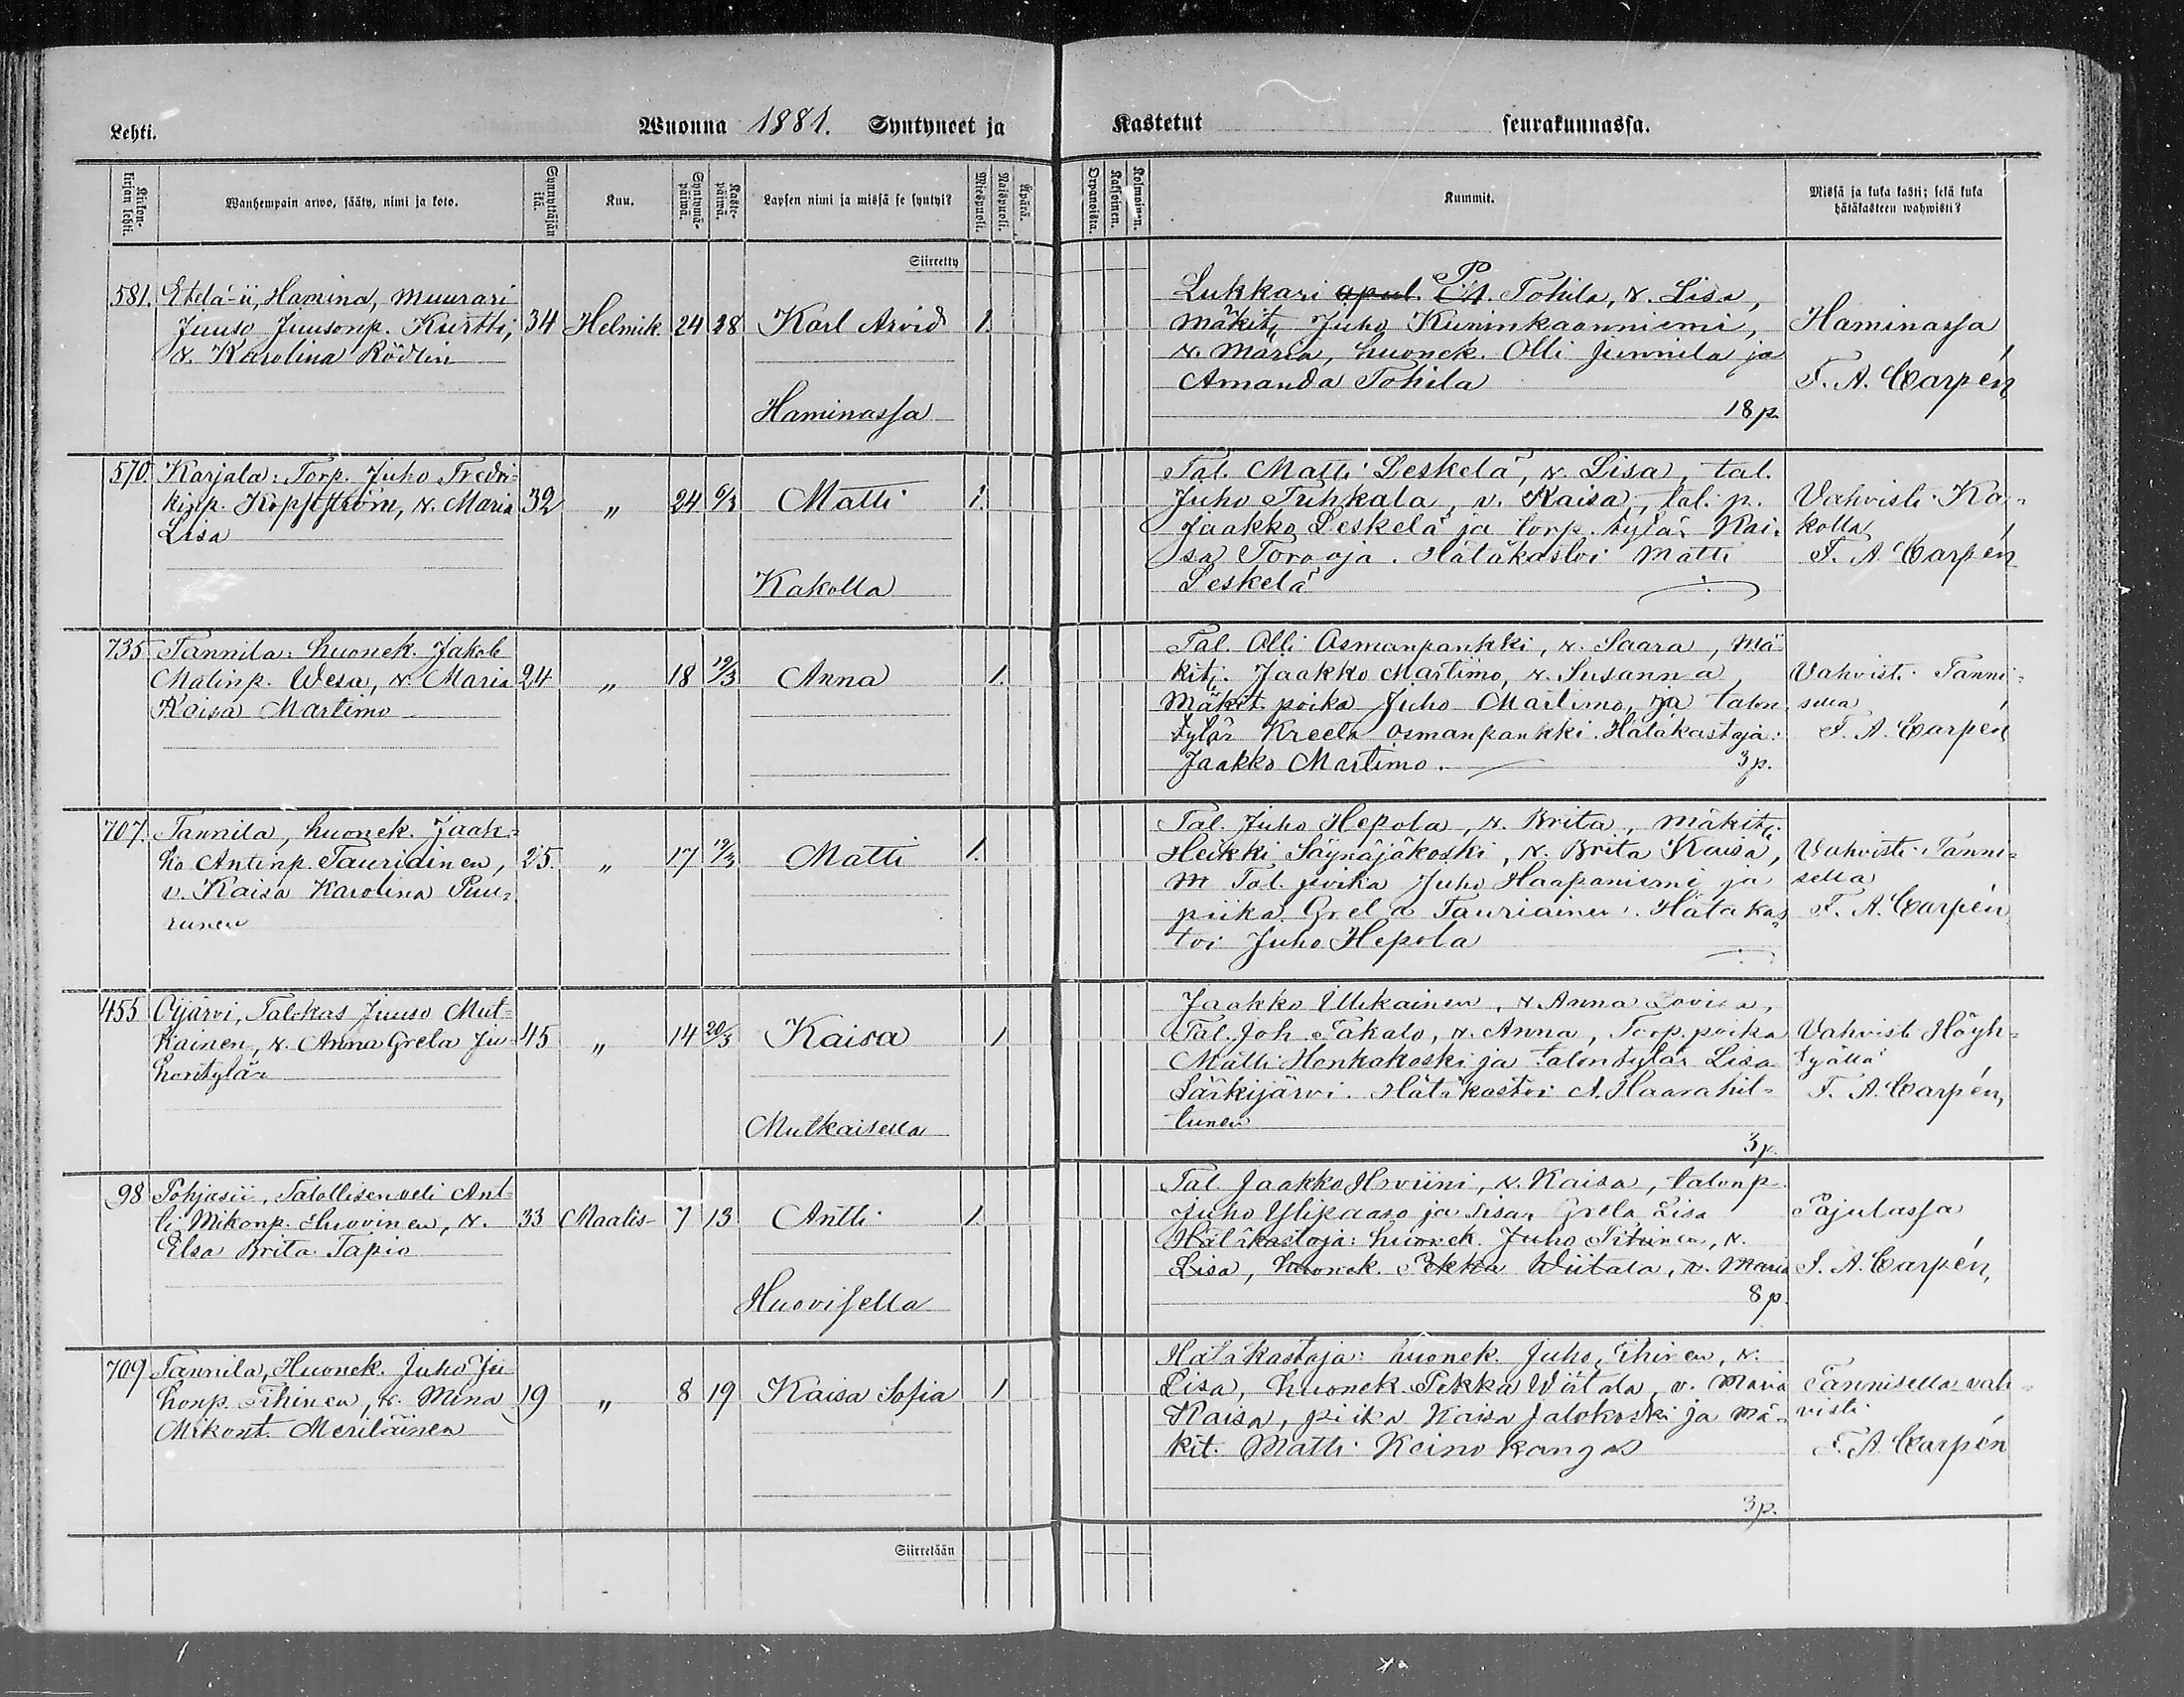 Lehti.
Wuonna 1881. Syntyneet ja
Kastetut seurakunnassa.
Ristonkirjan lehti
Wanhempain arwo, sääty, nimi ja koto.
Synnyttäjän ikä.
Kuu.
Syntymäpäiwä.
Kastepäiwä.
Lapsen nimi ja missä se syntyi?
Miespuoli.
Naispuoli.
Äpärä.
Kaksoinen.
Kolmoinen.
Kummit.
Missä ja kuka kasti; sekä kuka
hätäkasteen wahwisti?
Siirretty
581. Etelä-ii, Hamina, Muurari
Juuso Juusonp. Kurtti,
v. Karolina Rödlin
34 Helmik. 24 28 Karl Arvid 1.
Haminassa
Lukkari apul. P. Tohila, v. Lisa,
Mäkit. Juho Kuninkaanniemi,
v. Maria, huonek. Olli Junnila ja
Amanda Tohila
18 p.
Haminassa
F. A. Carpén
570. Karjala: Torp. Juho Fredri-
kinp. v. Maria
Lisa
32 " 24 6/3 Matti 1.
Kakolla
Tal. Matti Leskelä, v. Lisa, tal.
Juho Tuhkala, v. Kaisa, tal. p.
Jaakko Leskelä ja torp. tytär Kai-
sa Toro-oja. Hätäkastoi Matti
Leskelä
Vahvisti Ka-
kolla
F. A. Carpén
735. Tannila: huonek. Jakob
Matinp. Wesa, v. Maria
Kaisa Martimo
24 " 18 12/3 Anna 1.
Tal. Olli Osmanpankki, v. Saara, Mä-
kit. Jaakko Martimo, v. Susanna
Mäkit. poika Juho Martimo, ja talon
tytär Kreeta Osmanpankki. Hätäkastaja:
Jaakko Martimo. 3 p.
Vahvisti Tanni-
sella
F. A. Carpén
707. Tannila, huonek. Jaak-
ko Antinp. Tauriainen,
v. Kaisa Karolina Puu-
runen
25. " 17 12/3 Matti 1.
Tal. Juho Hepola, v. Brita, Mäkit.
Heikki Säynäjäkoski, v. Brita Kaisa,
M Tal. poika Juho Haapaniemi ja
piika Greta Tauriainen. Hätäkas-
toi Juho Hepola
Vahvisti Tanni-
sella
F. A. Carpén
455 Oijärvi, Talokas Juuso Mut-
kainen, v. Anna Greta Ju-
hontytär
45 " 14 20/3 Kaisa 1
Mutkaisella
Jaakko v. Anna Lovisa,
Tal. Joh. Takalo, v. Anna, Torp. poika
Matti Honkakoski ja talon tytär Lisa
Särkijärvi. Hätäkastoi A. Haarahil-
tunen
3 p.
Vahvisti Höyh-
tyällä
F. A. Carpén,
98 Pohjasii, Talollisen veli Ant-
ti Mikonp. Huovinen, v.
Elsa Brita Tapio
33 Maalis- 7 13 Antti 1.
Huovisella
Tal. Jaakko v. Kaisa, talonp.
Juho Ylipaaso ja sisar Greta Lisa
Hätäkastaja: huonek. Juho Tihinen, v.
Lisa, huonek. Pekka Wiitala, v. Maria
8 p.
Pajulassa
F. A. Carpén,
709 Tannila, Huonek. Juho Ju-
honp. Tihinen, v. Mina
Mikont. Meriläinen
19 " 8 19 Kaisa Sofia 1
Hätäkastaja: huonek. Juho Tihinen, v.
Lisa, huonek. Pekka Wiitala, v. Maria
Kaisa, piika Kaisa Jalokoski ja mä-
kit. Matti Keinokangas
3 p.
Tannisella vah-
visti
F. A. Carpén
Siirretään